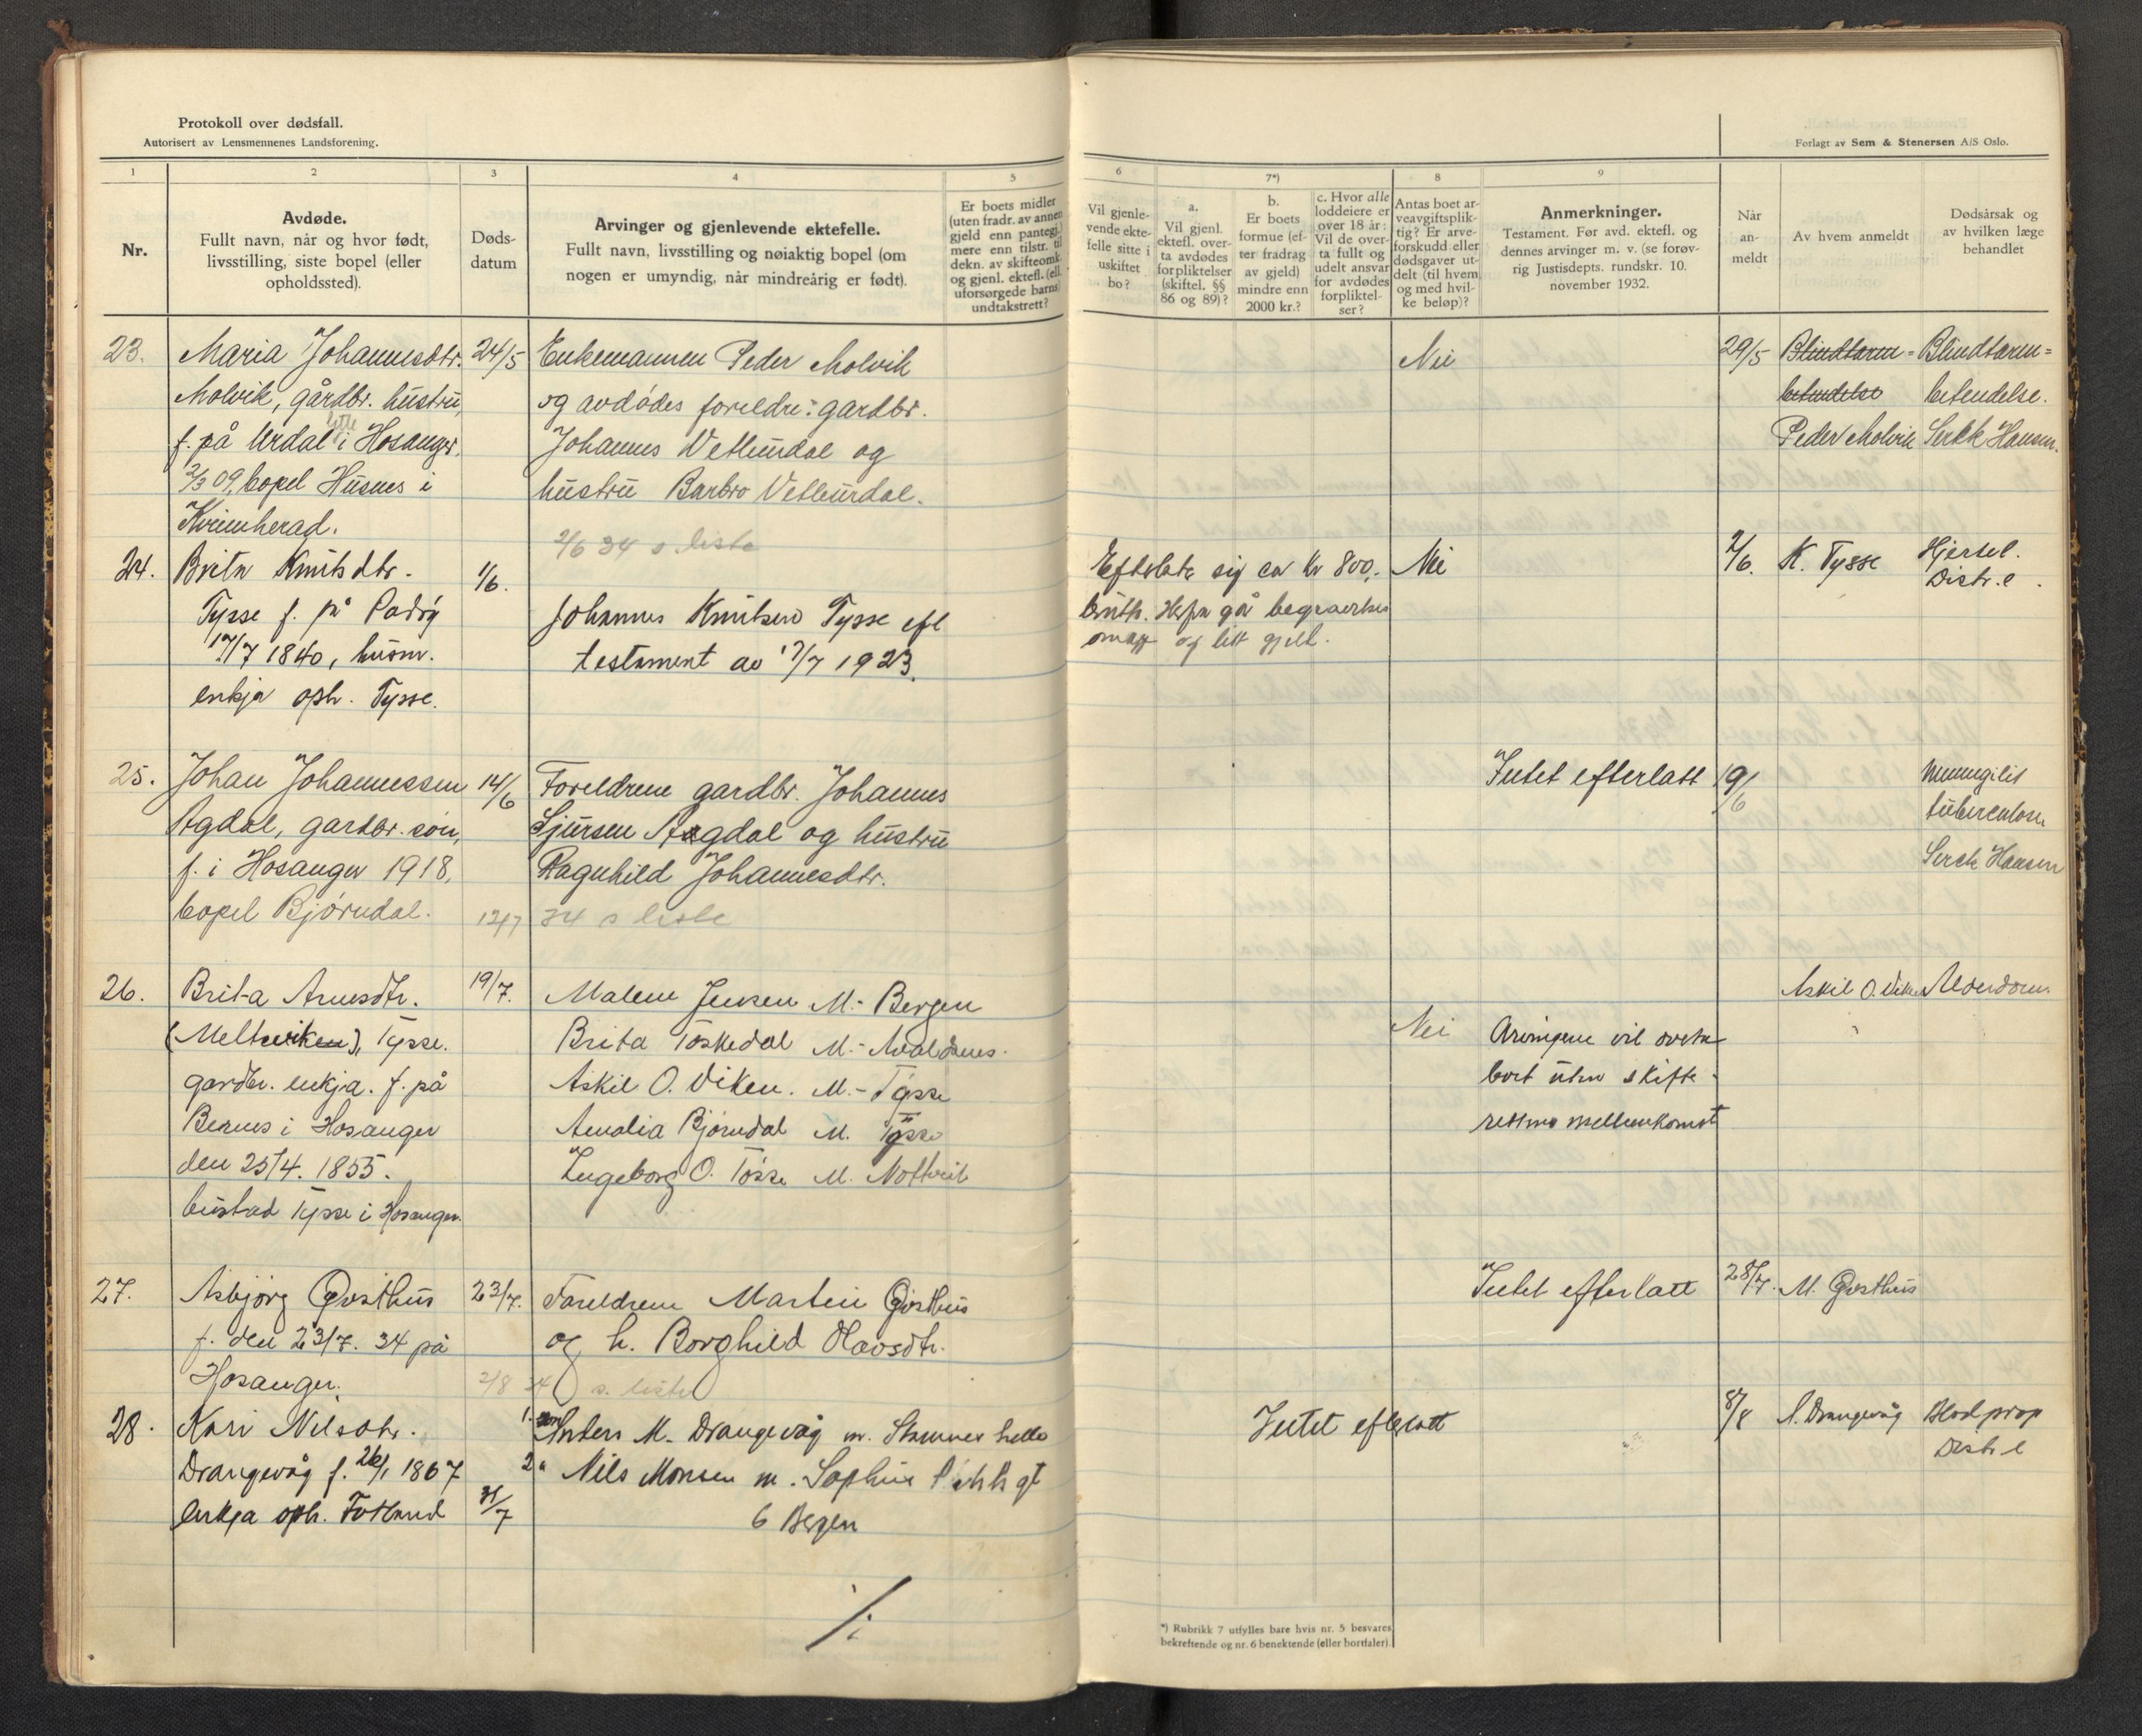 Protokoll over dødsfall.
Autorisert av Lensmennenes Landsforening.
Forlagt av Sem & Stenersen A/S Oslo.
1
2
3
4
5
6
7*)
8
9
Nr.
Avdøde.
Fullt navn, når og hvor født,
livsstilling, siste bopel (eller
opholdssted).
Døds-
datum
Arvinger og gjenlevende ektefelle.
Fullt navn, livsstilling og nøiaktig bopel (om
nogen er umyndig, når mindreårig er født).
Er boets midler
(uten fradr. av annen
gjeld enn pantegj.)
mere enn tilstr. til
dekn. av skifteomk.
og gjenl. ektef. (ell.
uforsørgede barns)
undtakstrett?
Vil gjenle-
vende ekte-
felle sitte i
uskiftet
bo?
a.
Vil gjenl.
ektefl. over-
ta avdødes
forpliktelser
(skiftel. §§
86 og 89)?
b.
Er boets
formue (ef-
ter fradrag
av gjeld)
mindre enn
2000 kr.?
c. Hvor alle
loddeiere er
over 18 år:
Vil de over-
ta fullt og
udelt ansvar
for avdødes
forpliktel-
ser?
Antas boet ar-
veavgiftsplik-
tig? Er arve-
forskudd eller
dødsgaver ut-
delt (til hvem
og med hvil-
ke beløp)?
Anmerkninger.
Testament. Før avd. ektefl. og
dennes arvinger m. v. (se forøv-
rig Justisdepts. rundskr. 10.
november 1932.
Når
an-
meldt
Av hvem anmeldt
Dødsårsak og
av hvilken læge
behandlet
23.
Maria Johannesdtr.
Molvik, gårdbr. hustru,
litle
f. på Urdal i Hosanger.
2/3 09, bopel Husnes i
Kvinnherad.
24/5
Enkemannen Peder Molvik
og avdødes foreldre: gardbr.
Johannes Vetleurdal og
hustru Barbro Vetleurdal.
2/6 34 s liste
Nei
29/5
Blindtarm=
betendelse
Peder Molvik
Blindtarm=
betendelse.
Serkk Hansen.
24.
Brita Knutsdtr.
Tysse f. på Padøy
17/7 1840, husm.
enkja oph. Tysse.
1/6.
Johannes Knutsen Tysse efl
testament av 17/7 1923.
Efterlate sig ca kr 800,-
brutto. Herfra går begravelses
omk og litt gjeld.
Nei
2/6.
K. Tysse
Hjertel.
Distr.l.
25.
Johan Johannessen
Agdal, gardbr. søn,
f. i Hosanger 1918,
bopel Bjørndal.
14/6
Foreldrene gardbr. Johannes
Sjursen Aagdal og hustru
Ragnhild Johannesdtr.
12/7 34 s liste
Intet efterlatt
19/6
Meningitis
tuberculosa
Serck Hansen
26.
Brita Arnesdtr.
(Meltveiken), Tysse.
gardbr. enkja. f. på
Bernes i Hosanger
den 25/4. 1855.
bustad Tysse i Hosanger.
19/7.
Malene Jensen M.- Bergen
Brita Toskedal M.- Avaldsnes.
Askil O. Viken. M.- Tysse
Amalia Bjørndal M. Tysse
Ingeborg O. Tysse M. Nottveit
Nei
Arvingene vil overta
boet uten skifte-
rettens mellemkomst
Askil O. Viken
Alderdom.
27.
Asbjørg Gosthus
f. den 23/7. 34 på
Hosanger.
23/7.
Foreldrene Martin Gosthus
og h. Borghild Olavsdtr.
2/8 34 s. liste
Intet efterlatt
28/7.
M. Gosthus
28.
Kari Nilsdtr.
Drangevåg f. 26/1 1867
enkja oph. Fotland
31/7
1. Anders M. Drangevåg m. Stamneshella
2. Nils Monsen m. Sophus gt
6 Bergen
Intet efterlatt
8/8
A. Drangevåg
Blodprop
Distr l
/:
*) Rubrikk 7 utfylles bare hvis nr. 5 besvares
bekreftende og nr. 6 benektende (eller bortfaler).